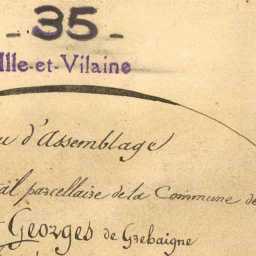 - 35 -
Ille-et-Vilaine
d'Assemblage
parcellaire de la Commune de
Georges de Grebaigne